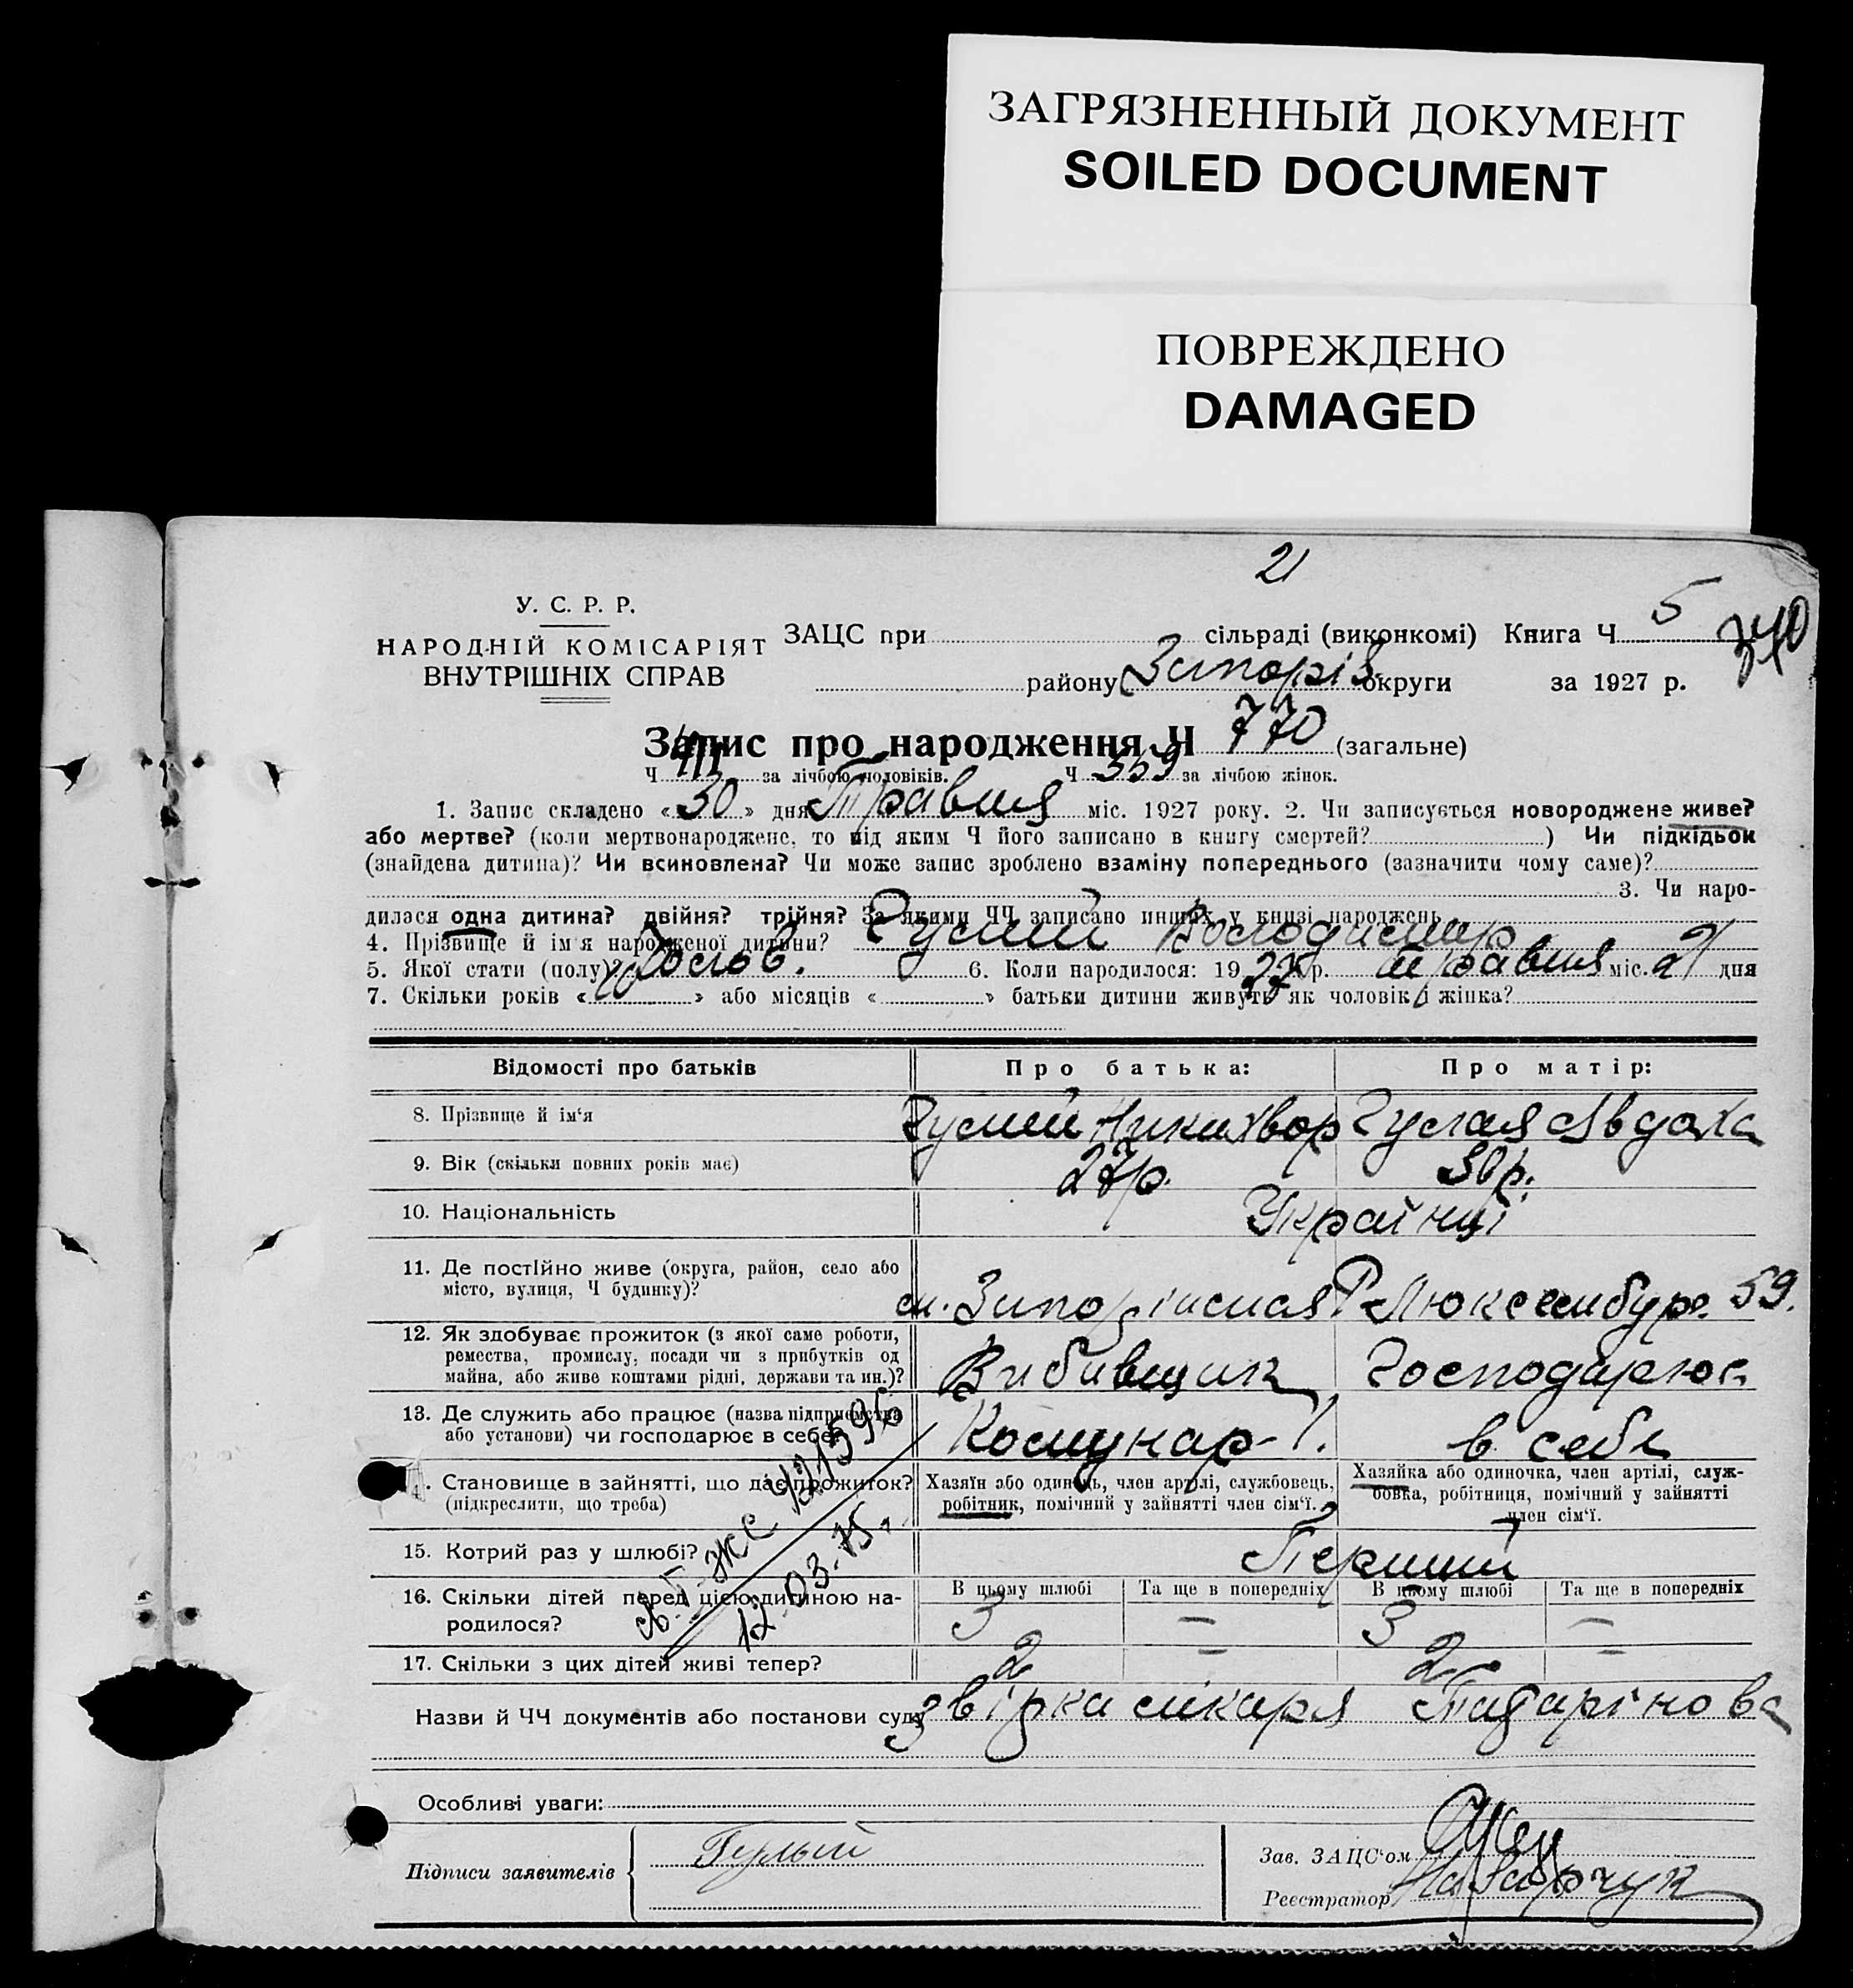 ЗАГРЯЗНЕННЫЙ ДОКУМЕНТ
SOILED DOCUMENT
ПОВРЕЖДЕНО
DAMAGED
21
У. С. Р. Р.
НАРОДНІЙ КОМІСАРІЯТ
ВНУТРІШНІХ СПРАВ
ЗАЦС при сільраді (виконкомі) Книга Ч 5
340
району Запоріз. округи за 1927 р.
Запис про народження Ч 770 (загальне)
Ч 411 за лічбою чоловіків. Ч 359 за лічбою жінок.
1. Запис складено «30» дня Травня міс. 1927 року. 2. Чи записується новороджене живе?
або мертве? (коли мертвонароджене, то під яким Ч його записано в книгу смертей? ) Чи підкідьок
(знайдена дитина)? Чи всиновлена? Чи може запис зроблено взаміну попереднього (зазначити чому саме)?
3. Чи наро-
дилася одна дитина? двійня? трійня? За якими ЧЧ записано инших у книзі народжень
4. Прізвище й ім'я народженої дитини? Гулий Володимир
5. Якої стати (полу)? Чолов. 6. Коли народилося: 1927 р. травня міс. 21 дня
7. Скільки років «10» або місяців « » батьки дитини живуть як чоловік і жінка?
Відомості про батьків Про батька: Про матір:
8. Прізвище й ім'я Гулий Никихвор Гулая Явдоха
9. Вік (скільки повних років має) 27 р. 30 р.
10. Національність Українці
11. Де постійно живе (округа, район, село або
місто, вулиця, Ч будинку)? м. Запоріжжя Р Люксембург. 59.
12. Як здобуває прожиток (з якої саме роботи,
ремества, промислу, посади чи з прибутків од
майна, або живе коштами рідні, держави та ин.)? Вибивщик Господарює
13. Де служить або працює (назва підприємства
або установи) чи господарює в себе? Комунар-1. в себе
14. Становище в зайнятті, що дає прожиток?
(підкреслити, що треба)
Хазяїн або одинець, член артілі, службовець,
робітник, помічний у зайнятті член сім'ї.
Хазяйка або одиночка, член артілі, служ-
бовка, робітниця, помічний у зайнятті
член сім'ї.
421596
12-03-75.
15. Котрий раз у шлюбі? Перший
16. Скільки дітей перед цією дитиною на-
родилося?
В цьому шлюбі Та ще в попередніх В цьому шлюбі Та ще в попередніх
3 — 3 —
17. Скільки з цих дітей живі тепер? 2 — 2 —
Назви й ЧЧ документів або постанови суду звірка лікаря
Особливі уваги:
Підписи заявителів Гулый
Зав. ЗАЦС'ом
Реєстратор Назарчук